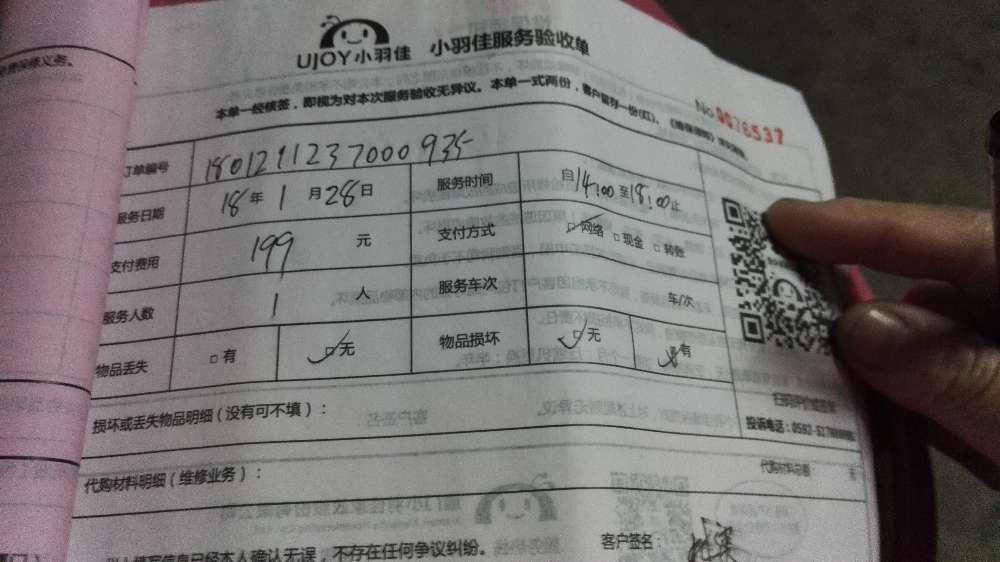 UJOY小羽佳 小羽佳服务验收单
本单一经核签，即视为对本次服务验收无异议。本单一式两份，客户留存一份(红)、
No 0078537
订单编号 1801211237000935
服务日期 18年1月28日 服务时间 自14:00至18:00止
支付费用 199元 支付方式 □网络 □现金 □转账
服务人数 1人 服务车次 车/次
物品丢失 □有 □无 物品损坏 □无 □有
损坏或丢失物品明细（没有可不填）：
投诉电话：0592-
代购材料明细（维修业务）： 代购材料总额
信息已经本人确认无误，不存在任何争议纠纷。
客户签名：